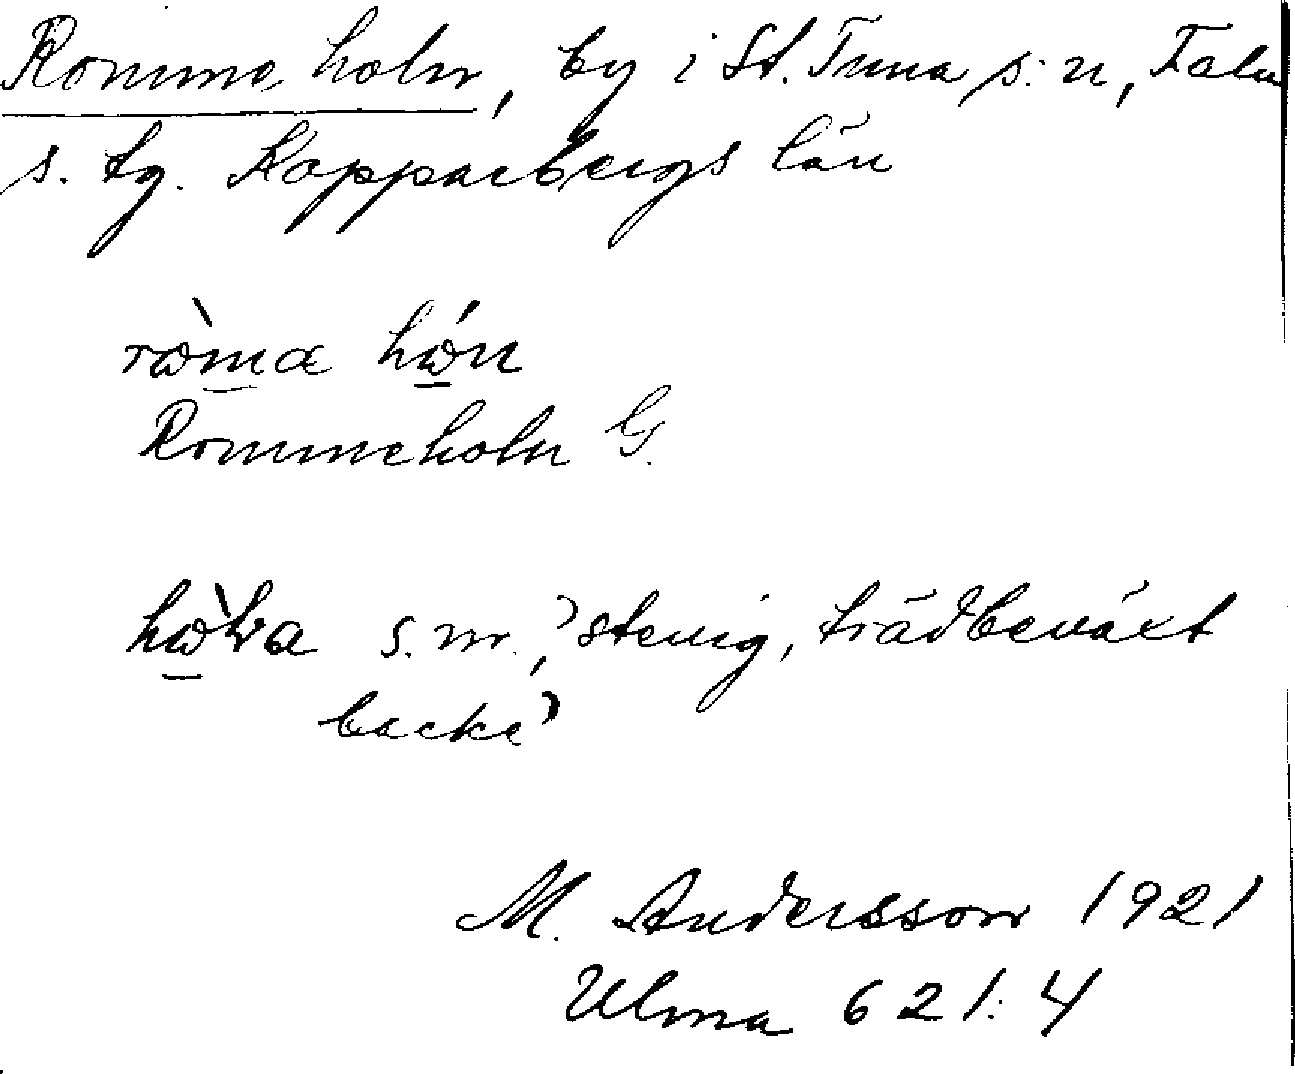 Romme holn, by i St. Tuna s:n, Falu
s. tg. Kopparbergs län
ròma hón
Rommeholn G.
s.m., 'stenig, trädbeväxt
backe'
M. Andersson 1921
Ulma 621:4